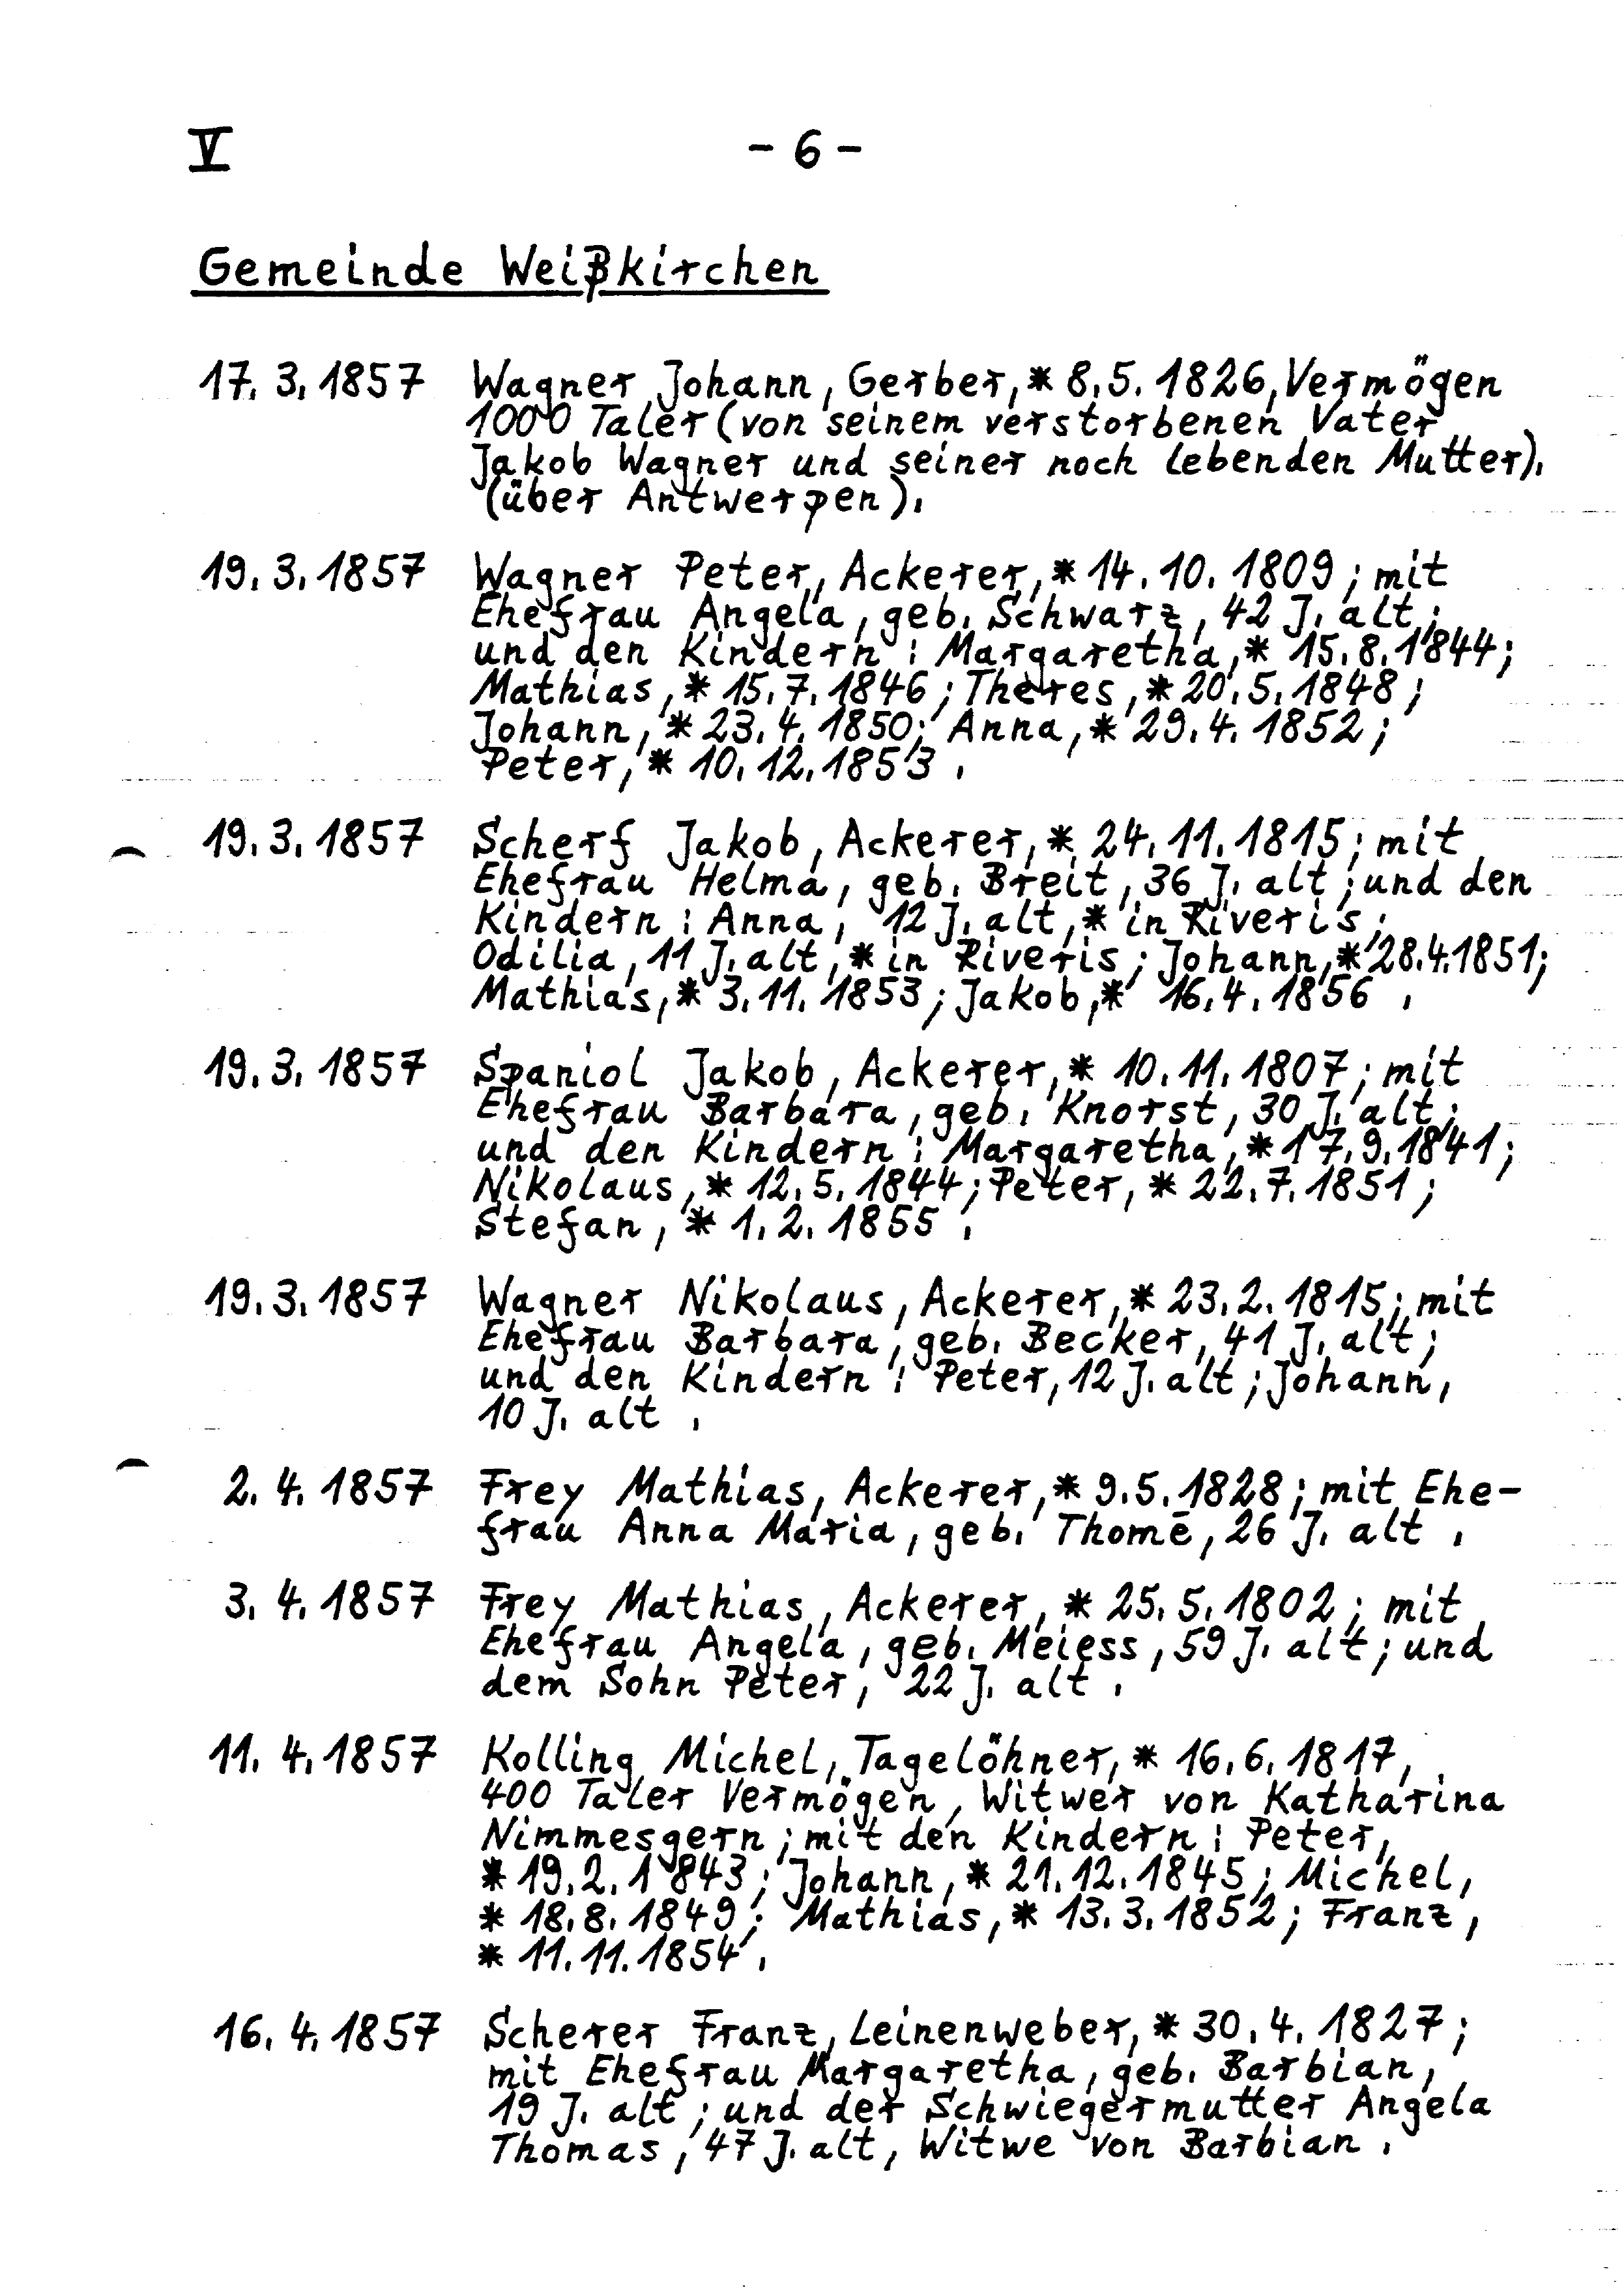 V - 6 -
Gemeinde Weißkirchen
17. 3. 1857 Wagner Johann, Gerber, * 8.5.1826, Vermögen
1000 Taler (von seinem verstorbenen Vater
Jakob Wagner und seiner noch lebenden Mutter).
(über Antwerpen).
19. 3. 1857 Wagner Peter, Ackerer, * 14.10.1809; mit
Ehefrau Angela, geb. Schwarz, 42 J. alt;
und den Kindern: Margaretha, * 15.8.1844;
Mathias, * 15.7.1846; Theres, * 20.5.1848;
Johann, * 23.4.1850; Anna, * 29.4.1852;
Peter, * 10.12.1853.
19. 3. 1857 Scherf Jakob, Ackerer, * 24.11.1815; mit
Ehefrau Helma, geb. Breit, 36 J. alt; und den
Kindern: Anna, 12 J. alt, * in Riveris;
Odilia, 11 J. alt, * in Riveris; Johann, * 28.4.1851;
Mathias, * 3.11.1853; Jakob, * 16.4.1856.
19. 3. 1857 Spaniol Jakob, Ackerer, * 10.11.1807; mit
Ehefrau Barbara, geb. Knorst, 30 J. alt;
und den Kindern: Margaretha, * 17.9.1841;
Nikolaus, * 12.5.1844; Peter, * 22.7.1851;
Stefan, * 1.2.1855.
19. 3. 1857 Wagner Nikolaus, Ackerer, * 23.2.1815; mit
Ehefrau Barbara, geb. Becker, 41 J. alt;
und den Kindern: Peter, 12 J. alt; Johann,
10 J. alt.
2. 4. 1857 Frey Mathias, Ackerer, * 9.5.1828; mit Ehe-
frau Anna Maria, geb. Thomé, 26 J. alt.
3. 4. 1857 Frey Mathias, Ackerer, * 25.5.1802; mit
Ehefrau Angela, geb. Meiess, 59 J. alt; und
dem Sohn Peter, 22 J. alt.
11. 4. 1857 Kolling Michel, Tagelöhner, * 16.6.1817,
400 Taler Vermögen, Witwer von Katharina
Nimmesgern; mit den Kindern: Peter,
* 19.2.1843; Johann, * 21.12.1845; Michel,
* 18.8.1849; Mathias, * 13.3.1852; Franz,
* 11.11.1854.
16. 4. 1857 Scherer Franz, Leinenweber, * 30.4.1827;
mit Ehefrau Margaretha, geb. Barbian,
19 J. alt; und der Schwiegermutter Angela
Thomas, 47 J. alt, Witwe von Barbian.